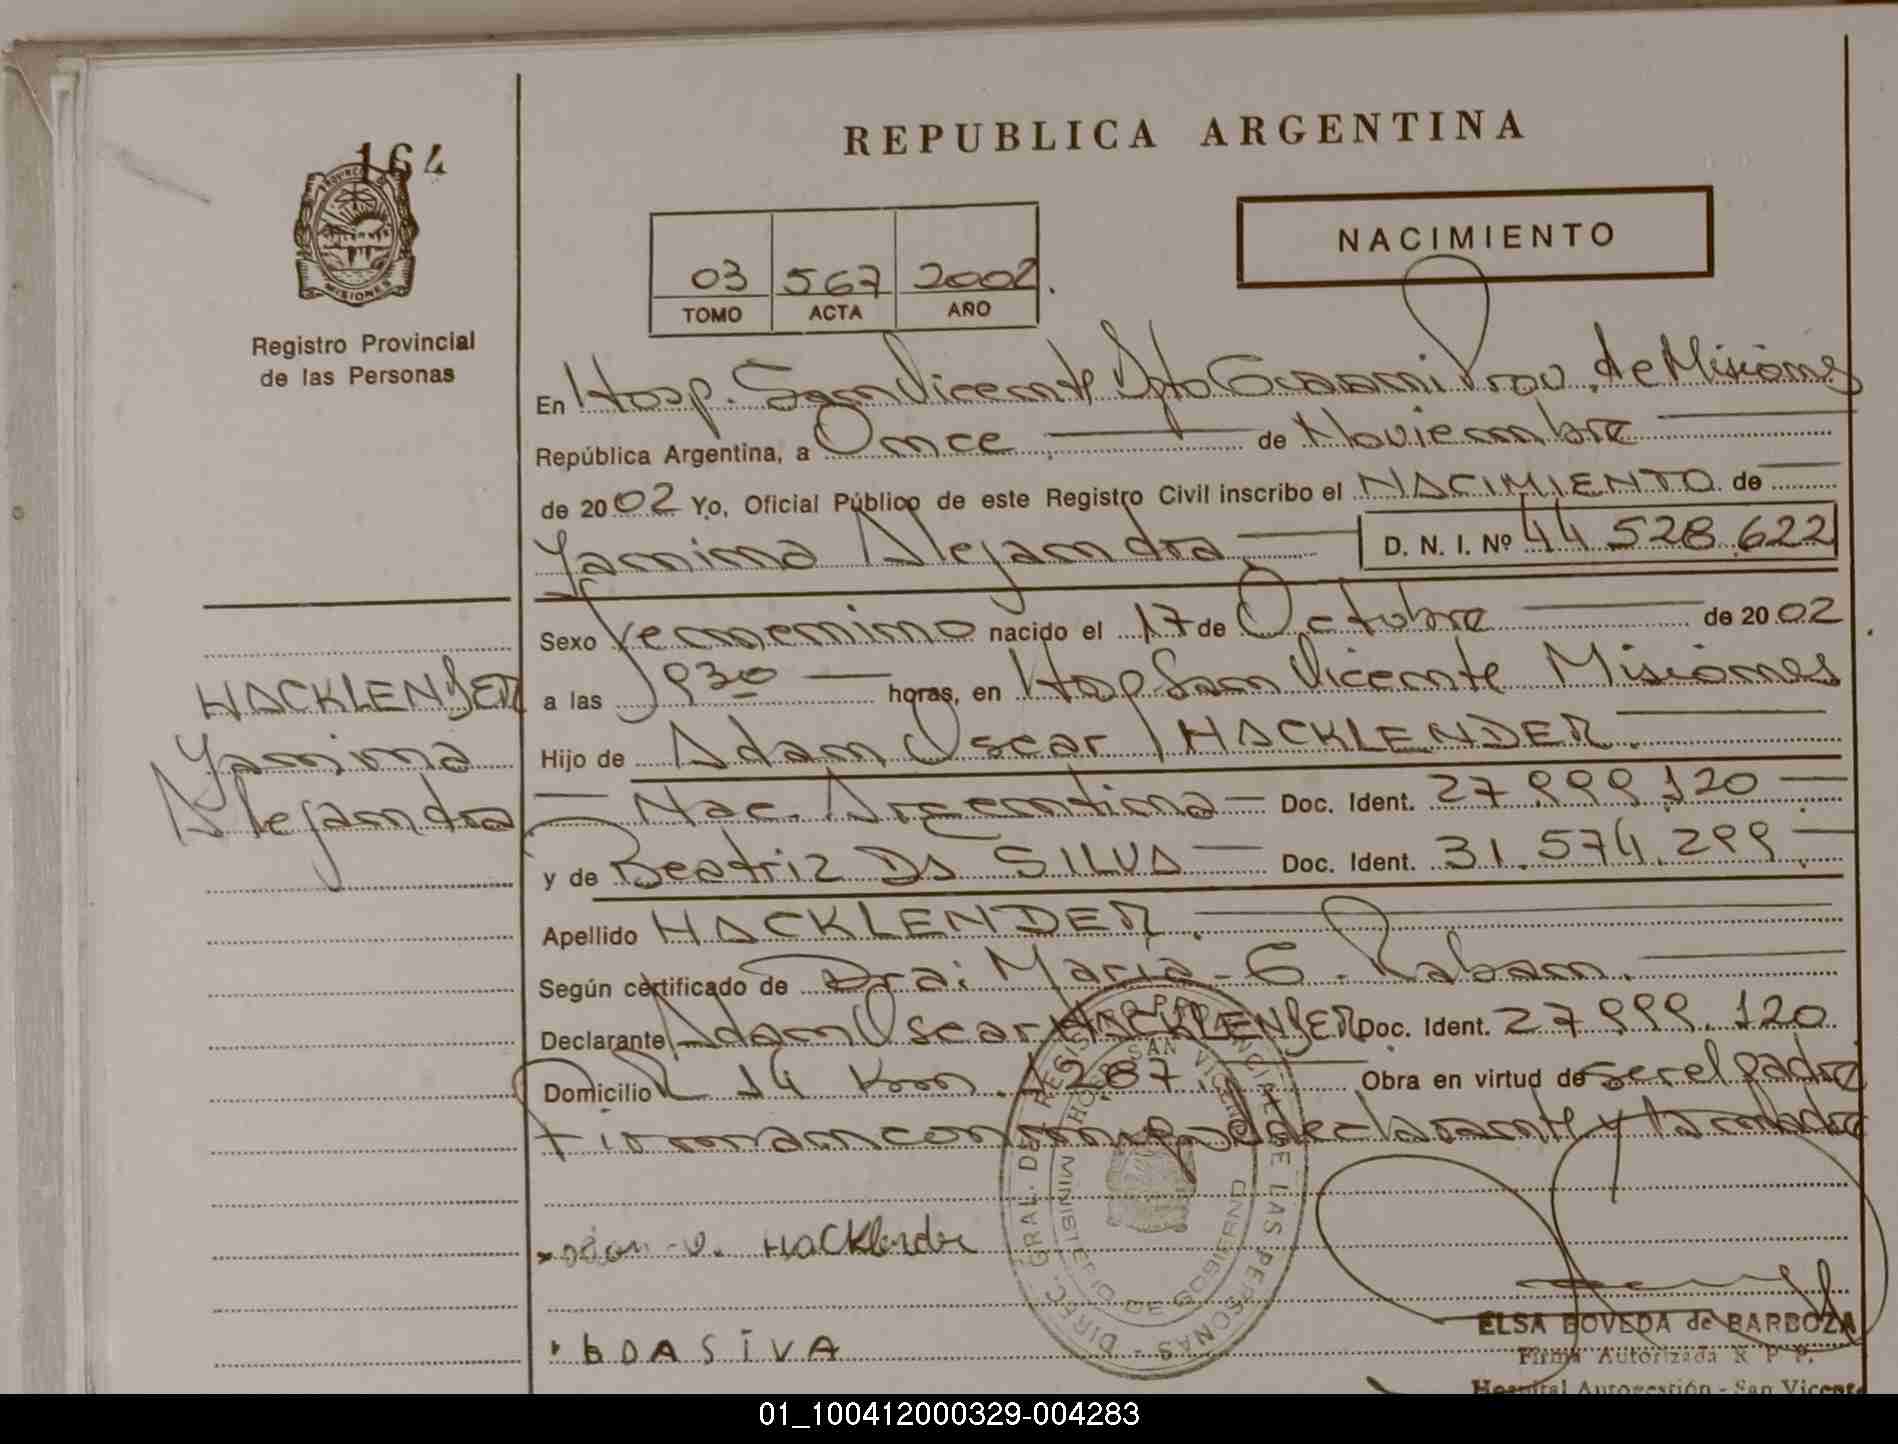 164
PROVINCIA DE
MISIONES
Registro Provincial
de las Personas
REPUBLICA ARGENTINA
NACIMIENTO
03 567 2002.
TOMO ACTA AÑO
En Hosp. San Vicente Dpto Guarani Prov. de Misiones
República Argentina, a Once de Noviembre
de 2002 Yo, Oficial Público de este Registro Civil inscribo el NACIMIENTO de
Yanina Alejandra D. N. I. Nº 44 528.622
Sexo Femenino nacido el 17 de Octubre de 2002
a las 930 horas, en Hosp San Vicente Misiones
Hijo de Adan Oscar HACKLENDER
Nac. Argentina Doc. Ident. 27 999 120
y de Beatriz DA SILVA Doc. Ident. 31.574.299
Apellido HACKLENDER.
Según certificado de Dra: Maria E. Raban.
Declarante Adan Oscar HACKLENDER Doc. Ident. 27 999.120
Domicilio R 14 Km. 1287. Obra en virtud de ser el padre
Firman conmigo el declarante y la madre
HACKLENDER
Yanina
Alejandra
HacKlender
DIREC. GRAL. DE REGISTRO PROVINCIAL DE LAS PERSONAS
HOSP. SAN VICENTE
MINISTERIO DE GOBIERNO
b DA SIVA
ELSA BOVEDA de BARBOZA
Firma Autorizada R P P.
Hospital Autogestión - San Vicente
01_100412000329-004283